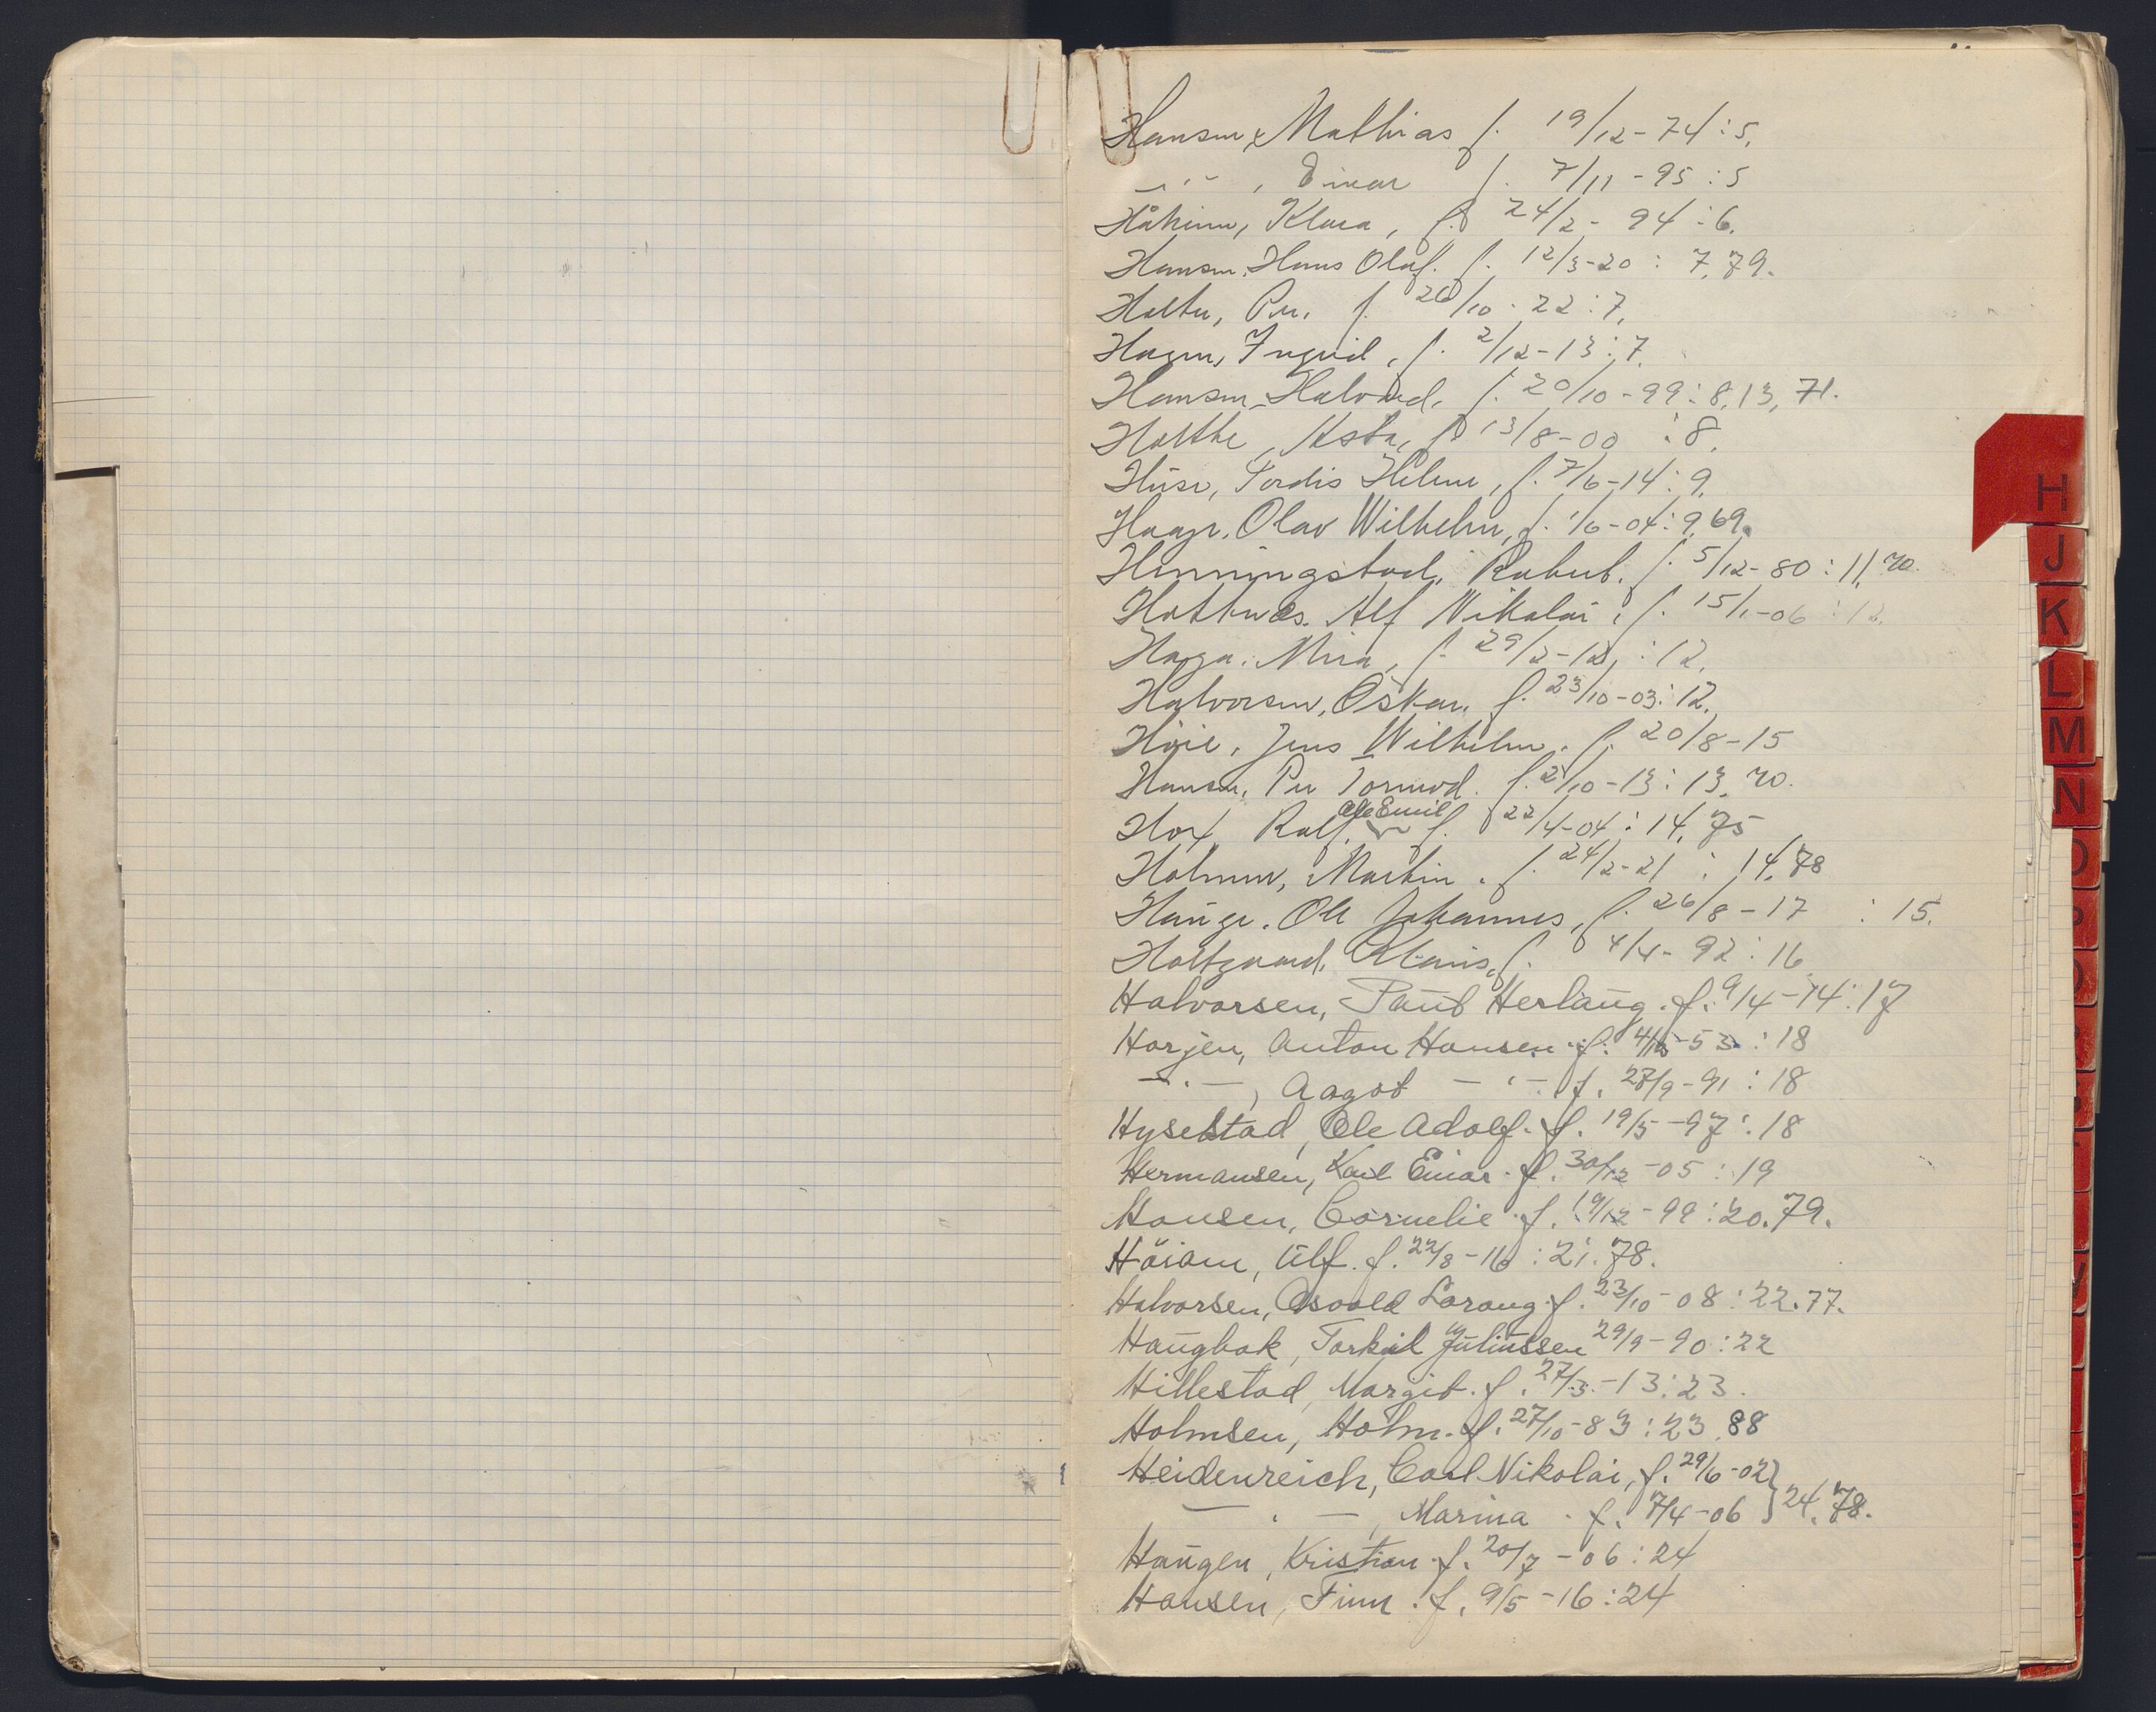 Hansen, Mathias f. 19/12-74:5.
—"— , Einar f. 7/11-95:5
Klara, f. 24/2-94:6.
Hansen, Hans Olaf. f. 12/3-20: 7,79.
Holter, Per. f. 26/10-22:7.
Hagen, Ingrid, f. 2/12-13:7.
Hansen, Halvard. f. 20/10-99:8,13,71.
Holthe, Asta, f. 13/8-00:8.
Huse, Tordis Helene, f. 7/6-14:9.
Haage, Olav Wilhelm, f. 1/6-04:9,69.
Henningstad, f. 5/12-80:11,70.
Alf Nikolai, f. 15/1-06:12.
Haga. f. 29/2-12:12.
Halvorsen, Oskar. f. 23/10-03:12.
Höie, Jens Wilhelm. f. 20/8-15
Hansen, Per Tormod. f. 2/10-13:13,70.
Ole Emil
Hox, Rolf, f. 22/4-04:14,75
Holmen, Martin. f. 24/2-21:14,78
Hauge. Ole Johannes, f. 26/8-17:15.
Holtgaard, f. 4/4-92:16
Halvorsen, Paul Herlaug. f. 9/4-14:17
Horjen, Anton Hansen f. 53:18
—"—, Aagot —"— f. 27/9-91:18
Hyselstad, Ole Adolf. f. 19/5-97:18
Hermansen, Karl Einar. f. 30/12-05:19
Hansen, Cornelie. f. 19/12-99:20.79.
Ulf. f. 22/8-16:21.78.
Halvorsen, Asvald Lorang. f. 23/10-08:22.77.
Haugbak, Torkil Juliussen 29/9-90:22
Hillestad, Margit. f. 27/3-13:23.
Holmsen, Holm. f. 27/10-83:23,88
Heidenreich, Carl Nikolai, f. 29/6-02
—"—, Marina. f. 7/4-06 } 24,78.
Haugen, Kristian. f. 20/7-06:24
Hansen, Finn. f. 9/5-16:24
H
J
K
L
M
N